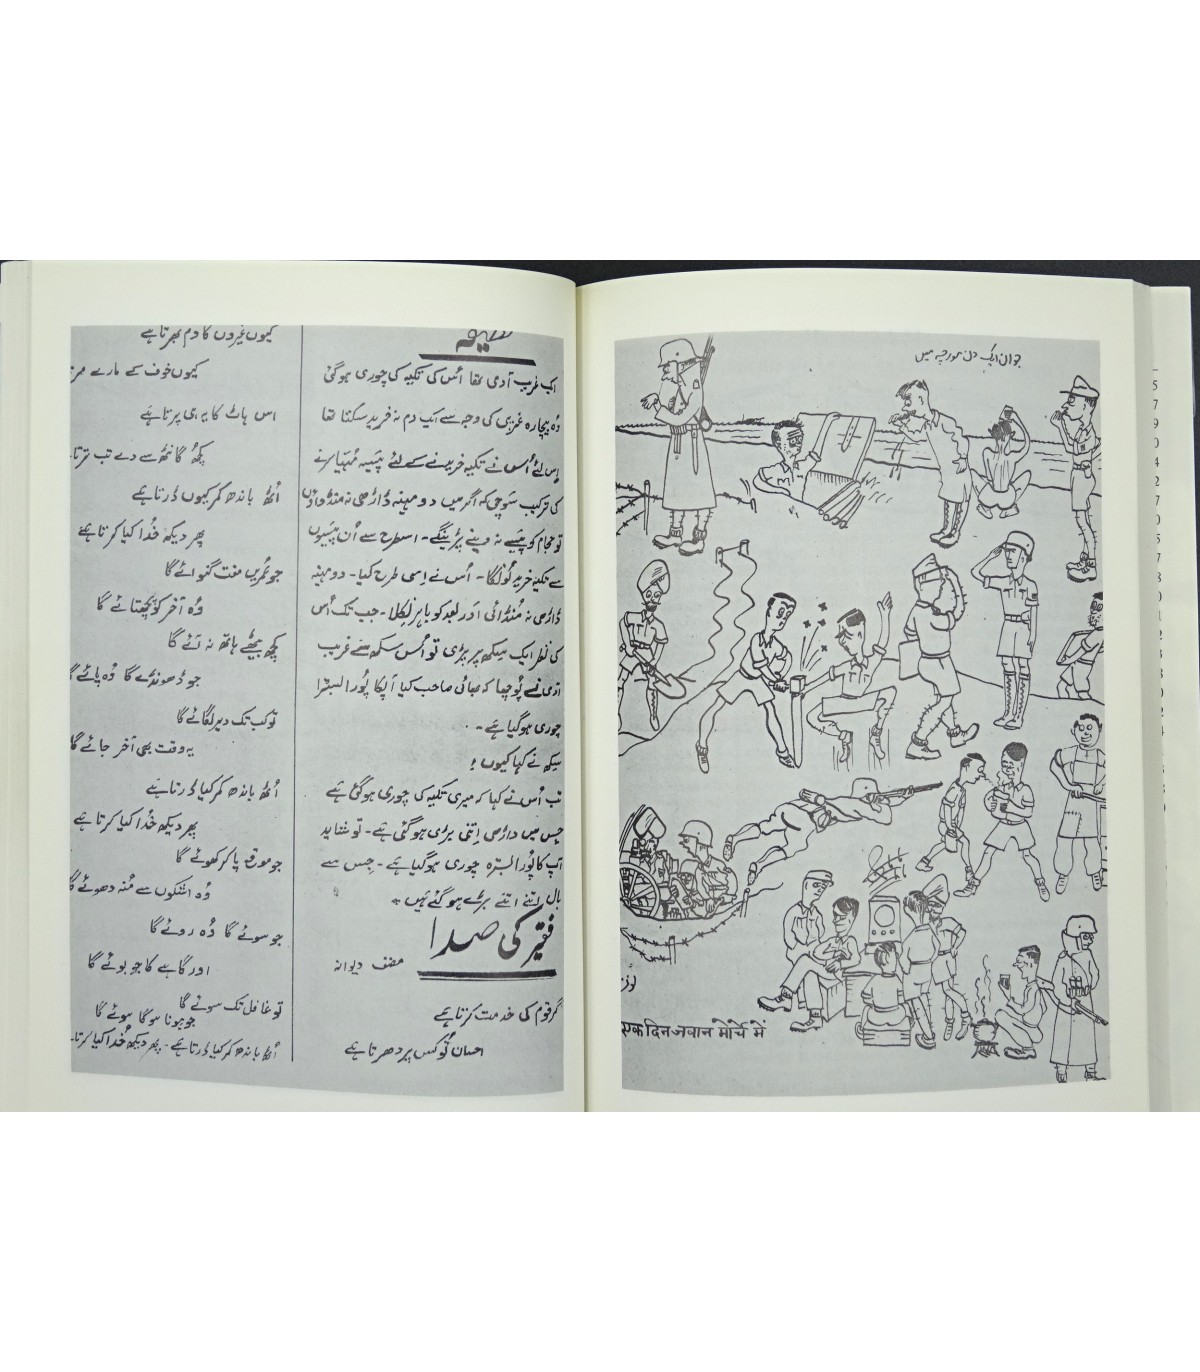 لطیفہ
ایک غریب آدمی تھا اُس کی تکیہ کی چوری ہوگئی
وُہ بیچارہ غریبی کی وجہ سے ایک دم نہ خرید سکتا تھا
اِس لئے اُس نے تکیہ خریدنے کے لئے پیسہ مُہیا کرنے
کی ترکیب سوچی کہ اگر میں دو مہینہ ڈاڑھی نہ منڈواؤں
تو حجام کو پیسے نہ دینے پڑینگے۔ اسطرح سے اُن پیسوں
سے تکیہ خرید لُونگا۔ اُس نے اِسی طرح کیا۔ دو مہینہ
ڈاڑھی نہ مُنڈائی اور بعد کو باہر نِکلا۔ جب تک اُس
کی نظر ایک سِکھ پر پڑی تو اُس سکھ سے غریب
آدمی نے پُوچھا کہ بھائی صاحب کیا آپکا پُورا بسترا
چوری ہوگیا ہے۔
سِکھ نے کہا کیوں!
تب اُس نے کہا کہ میری تکیہ کی چوری ہوگئی ہے
جس میں داڑھی اِتنی بڑی ہوگئی ہے۔ تو شاید
آپ کا پُورا بسترہ چوری ہوگیا ہے۔ جِس سے
بال اِتنے اِتنے بڑے ہوگئے ہیں۔
فقیر کی صدا
مصنف دیوانہ
گر قوم کی خدمت کرتا ہے
احسان تُو کس پر دھرتا ہے
کیوں غیروں کا دم بھرتا ہے
کیوں خوف کے مارے مرتا
اُٹھ باندھ کمر کیوں ڈرتا ہے
پھر دیکھ خُدا کیا کرتا ہے
جو عُمریں مفت گنوائے گا
وُہ آخر کو پچھتائے گا
کچھ بیٹھے ہاتھ نہ آئے گا
جو ڈھونڈے گا وُہ پائے گا
تو کب تک دیر لگائے گا
یہ وقت بھی آخر جائے گا
اُٹھ باندھ کمر کیا ڈرتا ہے
پھر دیکھ خُدا کیا کرتا ہے
جو موقع پا کر کھوئے گا
وُہ اشکوں سے مُنہ دھوئے گا
جو سوئے گا وُہ روئے گا
اور کاٹے گا جو بوئے گا
تو غافل تک سوئے گا
جو ہونا ہوگا ہوئے گا
اُٹھ باندھ کمر کیا ڈرتا ہے۔ پھر دیکھ خُدا کیا کرتا
جوان ایک دن مورچہ میں
एक दिन जवान मोर्चे में